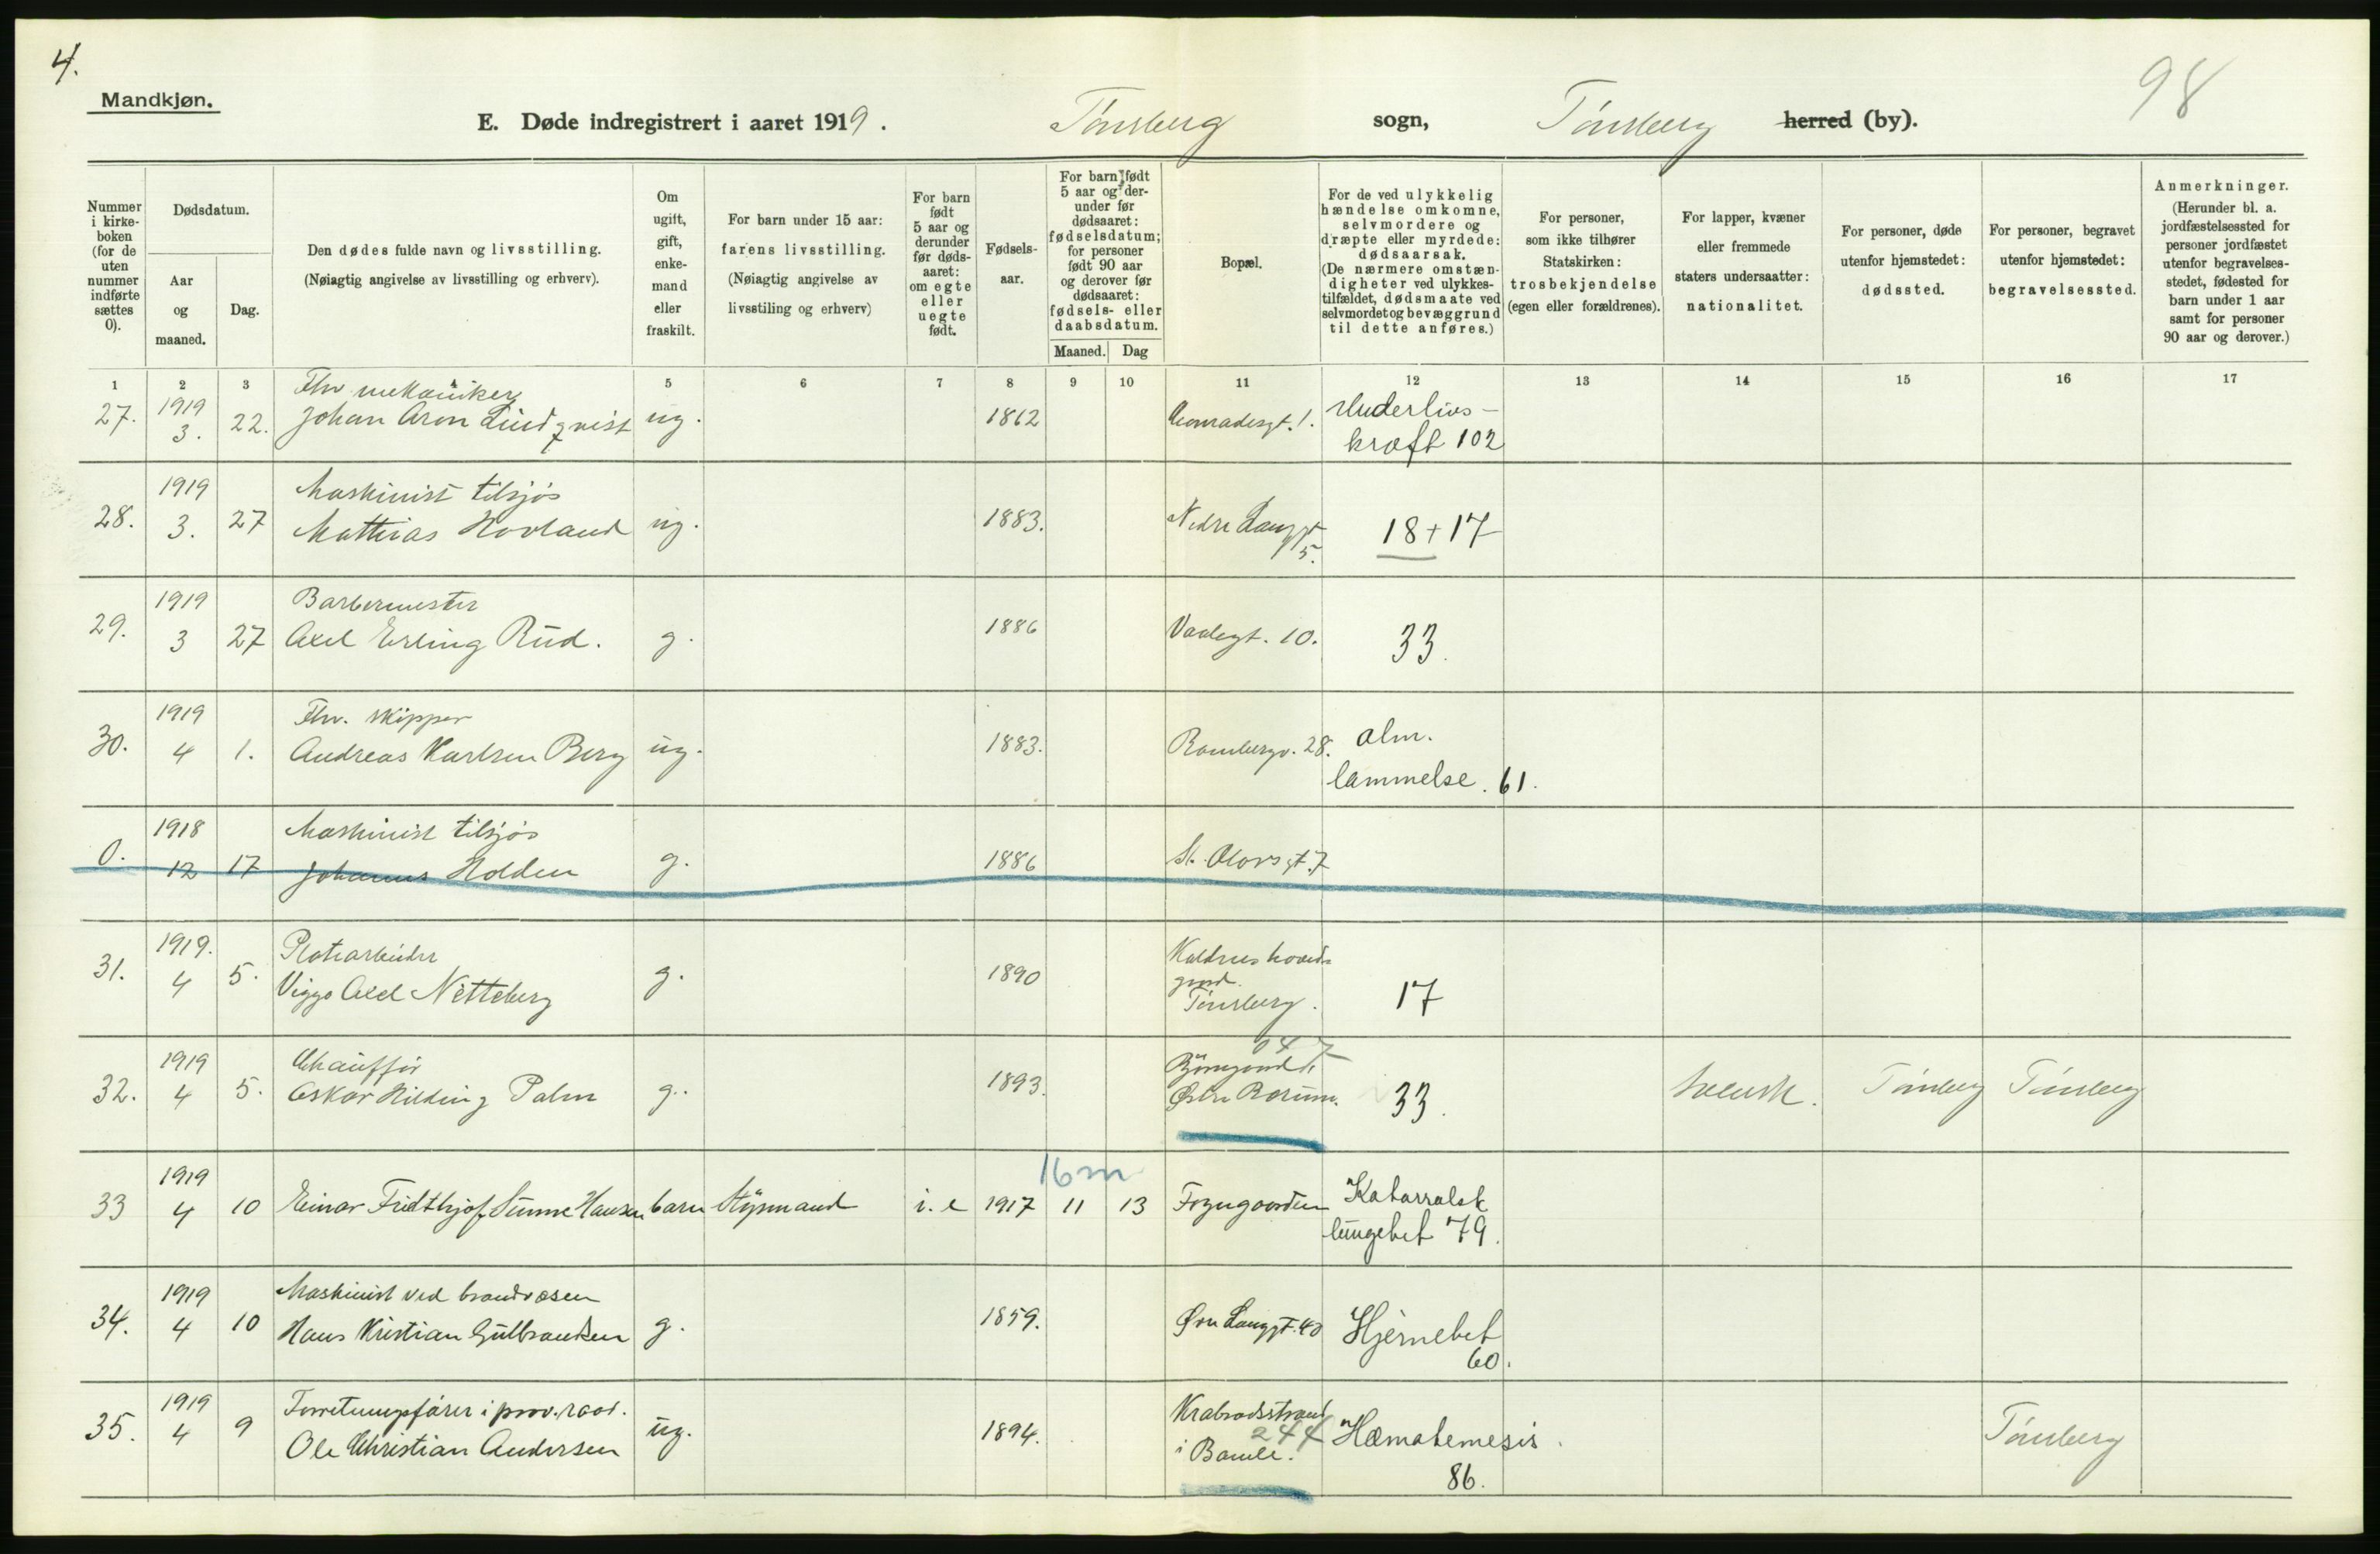 4.
98
Mandkjøn.
E. Døde indregistrert i aaret 1919. Tønsberg sogn, Tønsberg herred (by).
Nummer i kirkeboken (for de uten nummer indførte sættes 0).
Dødsdatum.
Aar og maaned.
Dag.
Den dødes fulde navn og livsstilling.
(Nøiagtig angivelse av livsstilling og erhverv).
Om ugift, gift, enkemand eller fraskilt.
For barn under 15 aar:
farens livsstilling.
(Nøiagtig angivelse av livsstiling og erhverv)
For barn født 5 aar og derunder før dødsaaret: om egte eller uegte født.
Fødselsaar.
For barn født 5 aar og derunder før dødsaaret: fødselsdatum; for personer født 90 aar og derover før dødsaaret: fødsels- eller daabsdatum.
Maaned. Dag
Bopæl.
For de ved ulykkelig hændelse omkomne, selvmordere og dræpte eller myrdede: dødsaarsak.
(De nærmere omstændigheter ved ulykkestilfældet, dødsmaate ved selvmordet og bevæggrund til dette anføres.)
For personer, som ikke tilhører Statskirken: trosbekjendelse (egen eller forældrenes).
For lapper, kvæner eller fremmede staters undersaatter: nationalitet.
For personer, døde utenfor hjemstedet: dødssted.
For personer, begravet utenfor hjemstedet: begravelsessted.
Anmerkninger.
(Herunder bl. a. jordfæstelsessted for personer jordfæstet utenfor begravelsesstedet, fødested for barn under 1 aar samt for personer 90 aar og derover.)
1 2 3 5 6 7 8 9 10 11 12 13 14 15 16 17
Fhv mekaniker
27. 1919 3. 22. Johan Aron Lindqvist ug. 1862 Conradesgt. 1. Underlivskræft 102
Maskinist tilsjøs
28. 1919 3. 27 Mathias Hovland ug. 1883. Nedre Langgt 5. 18+17
Barbermester
29. 1919 3 27 Axel Erling Rud. g. 1886 Vaalegt. 10. 33.
Fhv. skipper
30. 1919 4 1. Andreas Karlsen Berg ug. 1883. Rambergv. 28. alm. lammelse. 61.
Maskinist tilsjøs
0. 1918 12 17 Johannes Holden g. 1886 St. Olavsgt. 7
31. 1919. 4 5. Viggo Axel Netteberg g. 1890 Tønsberg. 17
Chauffør
32. 1919 4 5. Oskar Hilding Palm g. 1893. Østre 33. svensk. Tønsberg Tønsberg
16 m
33 1919 4 10 Einar Fridthjof Sunne Hansen barn Styrmand i. e 1917 11 13 Frøngaarden Katarralsk lungebet 79.
Maskinist ved brandvæsen
34. 1919 4 10 Hans Kristian Gulbrandsen g. 1859. Øvre Langgt. 40 Hjernebet 60.
Forretningsfører i prov.raad.
35. 1919 4 9 Ole Christian Andersen ug. 1894. i Bamle. 244 Hæmatemesis. 86. Tønsberg